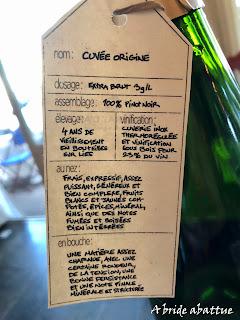 nom: CUVÉE ORIGINE
dosage: EXTRA BRUT 3g/L
assemblage: 100% PINOT NOIR
élevage:
4 ANS DE
VIEILLISSEMENT
EN BOUTEILLES
SUR LIES
vinification:
CUVERIE INOX
THERMORÉGULÉE
ET VINIFICATION
SOUS BOIS POUR
25% DU VIN
au nez:
FRAIS, EXPRESSIF, ASSEZ
PUISSANT, GÉNÉREUX ET
BIEN COMPLEXE, FRUITS
BLANCS ET JAUNES COM-
POTÉS, ÉPICES, MINÉRAL,
AINSI QUE DES NOTES
FUMÉES ET BOISÉES
BIEN INTÉGRÉES
en bouche:
UNE MATIÈRE ASSEZ
CHARNUE, AVEC UNE
CERTAINE RONDEUR,
DE LA TENSION, UNE
BONNE PERSISTANCE
ET UNE NOTE FINALE
MINÉRALE ET STRUCTURÉE
A bride abattue